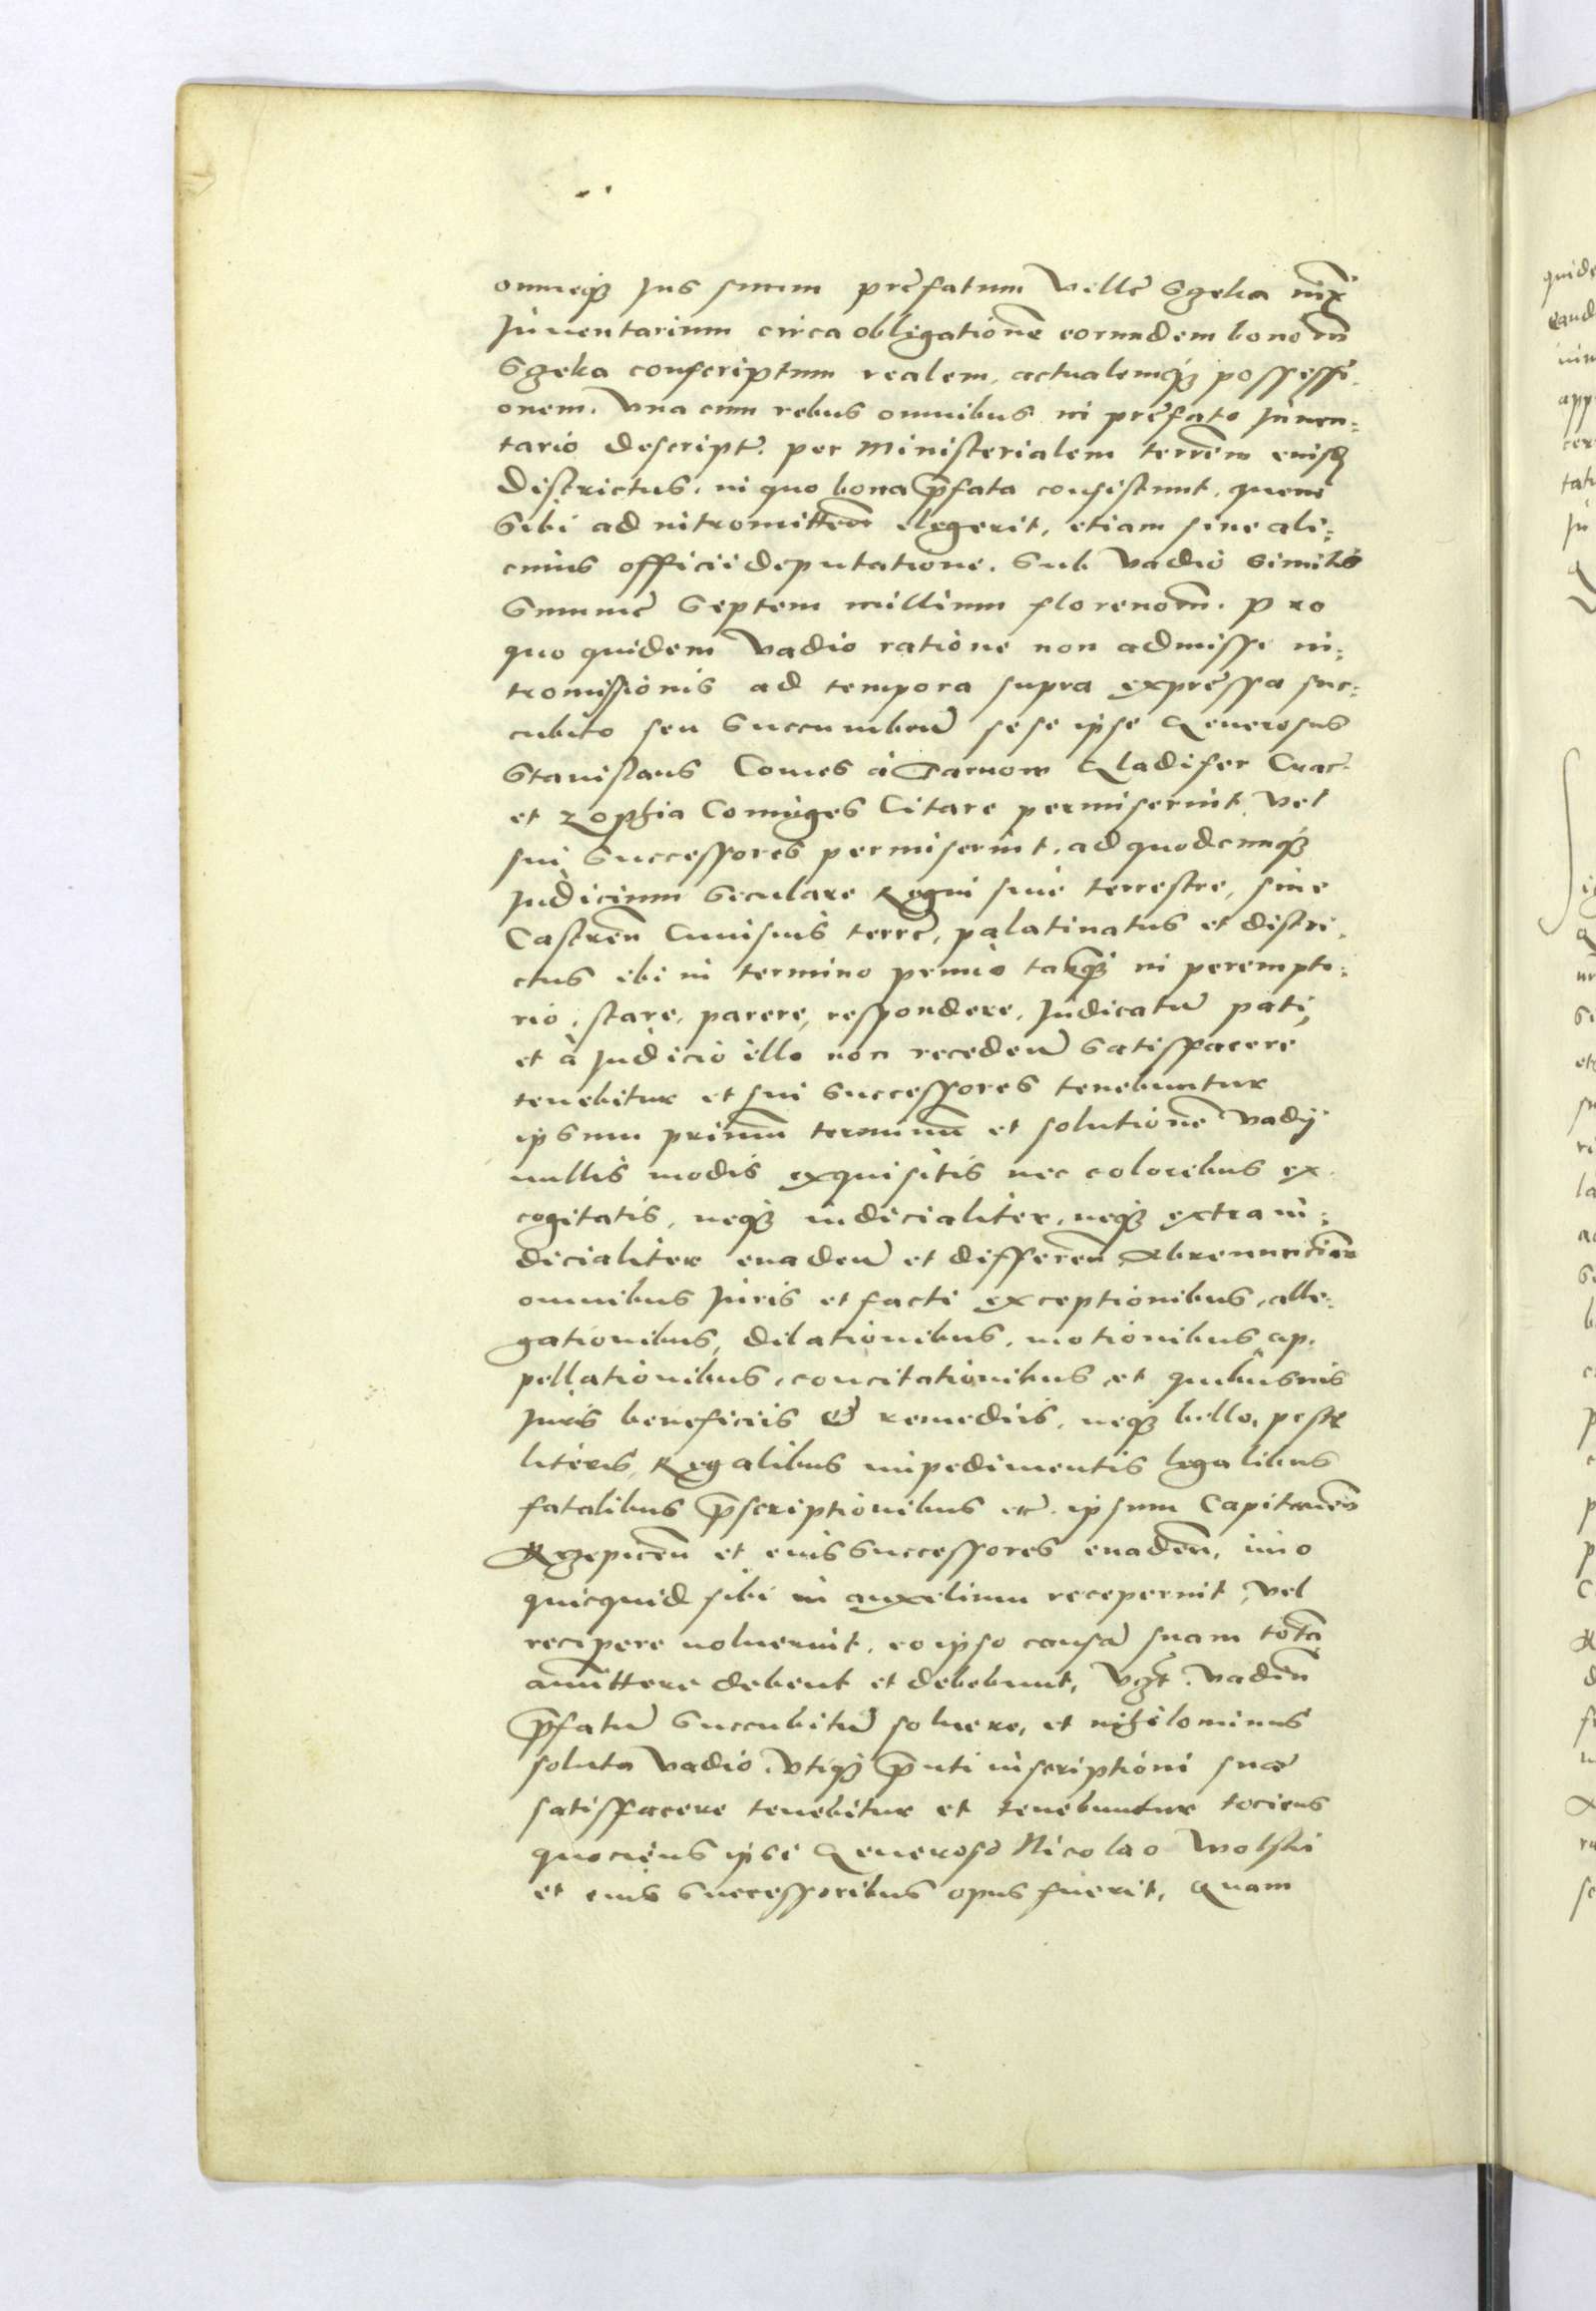 omneq3 Jus suum prefatum Villę Szeka iux̃
Juuentarium circa obligationẽ eorundem bonorũ
Szeka conscriptum realem, actualemq3 possessi-
onem. Vna cum rebus omnibus in prefato Inuen:
tario descriptę. per Ministerialem terrem̃ cuisq3
Districtus. in quo bona p̃fata consistunt. quem
Sibi ad intromitteñ elegerit, etiam sine ali:
cuius officii deputatione. Sub Vadio similis
Summę Septem millium florenom̃. Pro
quo quidem Vadio ratione non admisse in:
tromissionis ad tempora supra expressa suc:
cubito seu Succumbeñ sese ipse Generosus
Stanislaus Comes à Tarnow Gladifer Crac̃
et Zophia Coniuges Citare permiserunt Vel
sui Successores permiserint. ad quodcunq3
Judicium Seculare Regni siue terrestre, siue
Castreñ Cuiusuis terrę, palatinatus et distri-
ctus ibi in termino primo tanq3 in perempto:
rio. stare, parere, respondere, Judicatũ pati,
et à Judicio illo non recedeñ Satisfacere
tenebitur et sui Successores tenebuntur
ipsum primũ terminũ et solutionẽ Vadij
nullis modis exquisitis nec coloribus ex-
cogitatis, neq3 iudicialiter, neq3 extraiu:
dicialiter euadeñ et differeñ Abrenuncian̄
omnibus Juris et facti exceptionibus, alle:
gationibus, dilationibus. motionibus ap-
pellationibus, concitationibus et quibusuis
Juris beneficiis & remediis, neq3 bello, peste
literis, Regalibus impedimentis legalibus
fatalibus p̃scriptionibus etc̃. ipsum Capitaneũ
Rzepiceñ et eius Successores euadeñ, imo
quicquid sibi in auxilium receperint, Vel
recipere uoluerint. eo ipso causã suam totã
amittere debent et debebunt, Vadiũ
p̃fatũ Succubitũ soluere, et nihilominus
soluto Vadio. Vtiq3 p̃nti inscriptioni suæ
satisfacere tenebitur et tenebuntur tociens
quociens ipsi Generoso Nicolao Wolski
et eius Successoribus opus fuerit, Quam